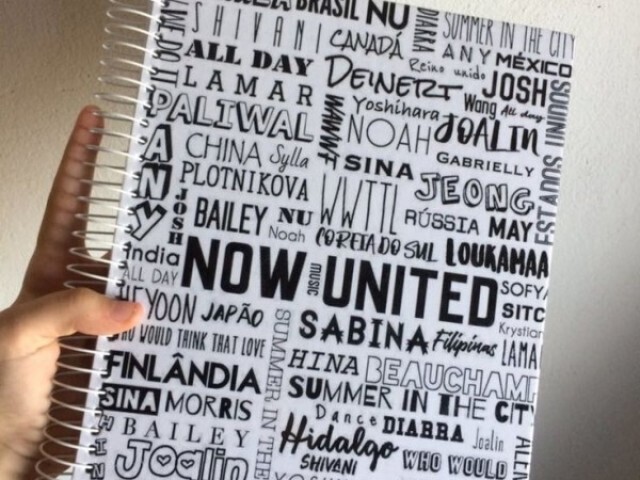 BRASIL NU
LIVE DO IT
SHIVANI
CANADÁ
DIARRA
SUMMER IN THE CITY
ANY MÉXICO
ALL DAY
Reino unido
JOSH
LAMAR
DEINERT
Wang All day
PALIWAL
Yoshihara
JOALIN
ANY
NOAH
GABRIELLY
CHINA Sylla
WANWF
SINA
JEONG
PLOTNIKOVA
WWTTL
RÚSSIA MAY
JOSH
BAILEY NU
Noah
COREIA DO SUL
LOUKAMAA
India
ALL DAY
NOW
music
UNITED
SOFY
HEYOON JAPÃO
SABINA
Filipinas
SITC
Krystian
WHO WOULD THINK THAT LOVE
SUMMER IN THE
HINA BEAUCHAMP
LAMA
FINLÂNDIA
SUMMER IN THE CITY
SINA MORRIS
Dance DIARRA Joalin
BAILEY
Hidalgo
SHIVANI
WHO WOULD
Joalin